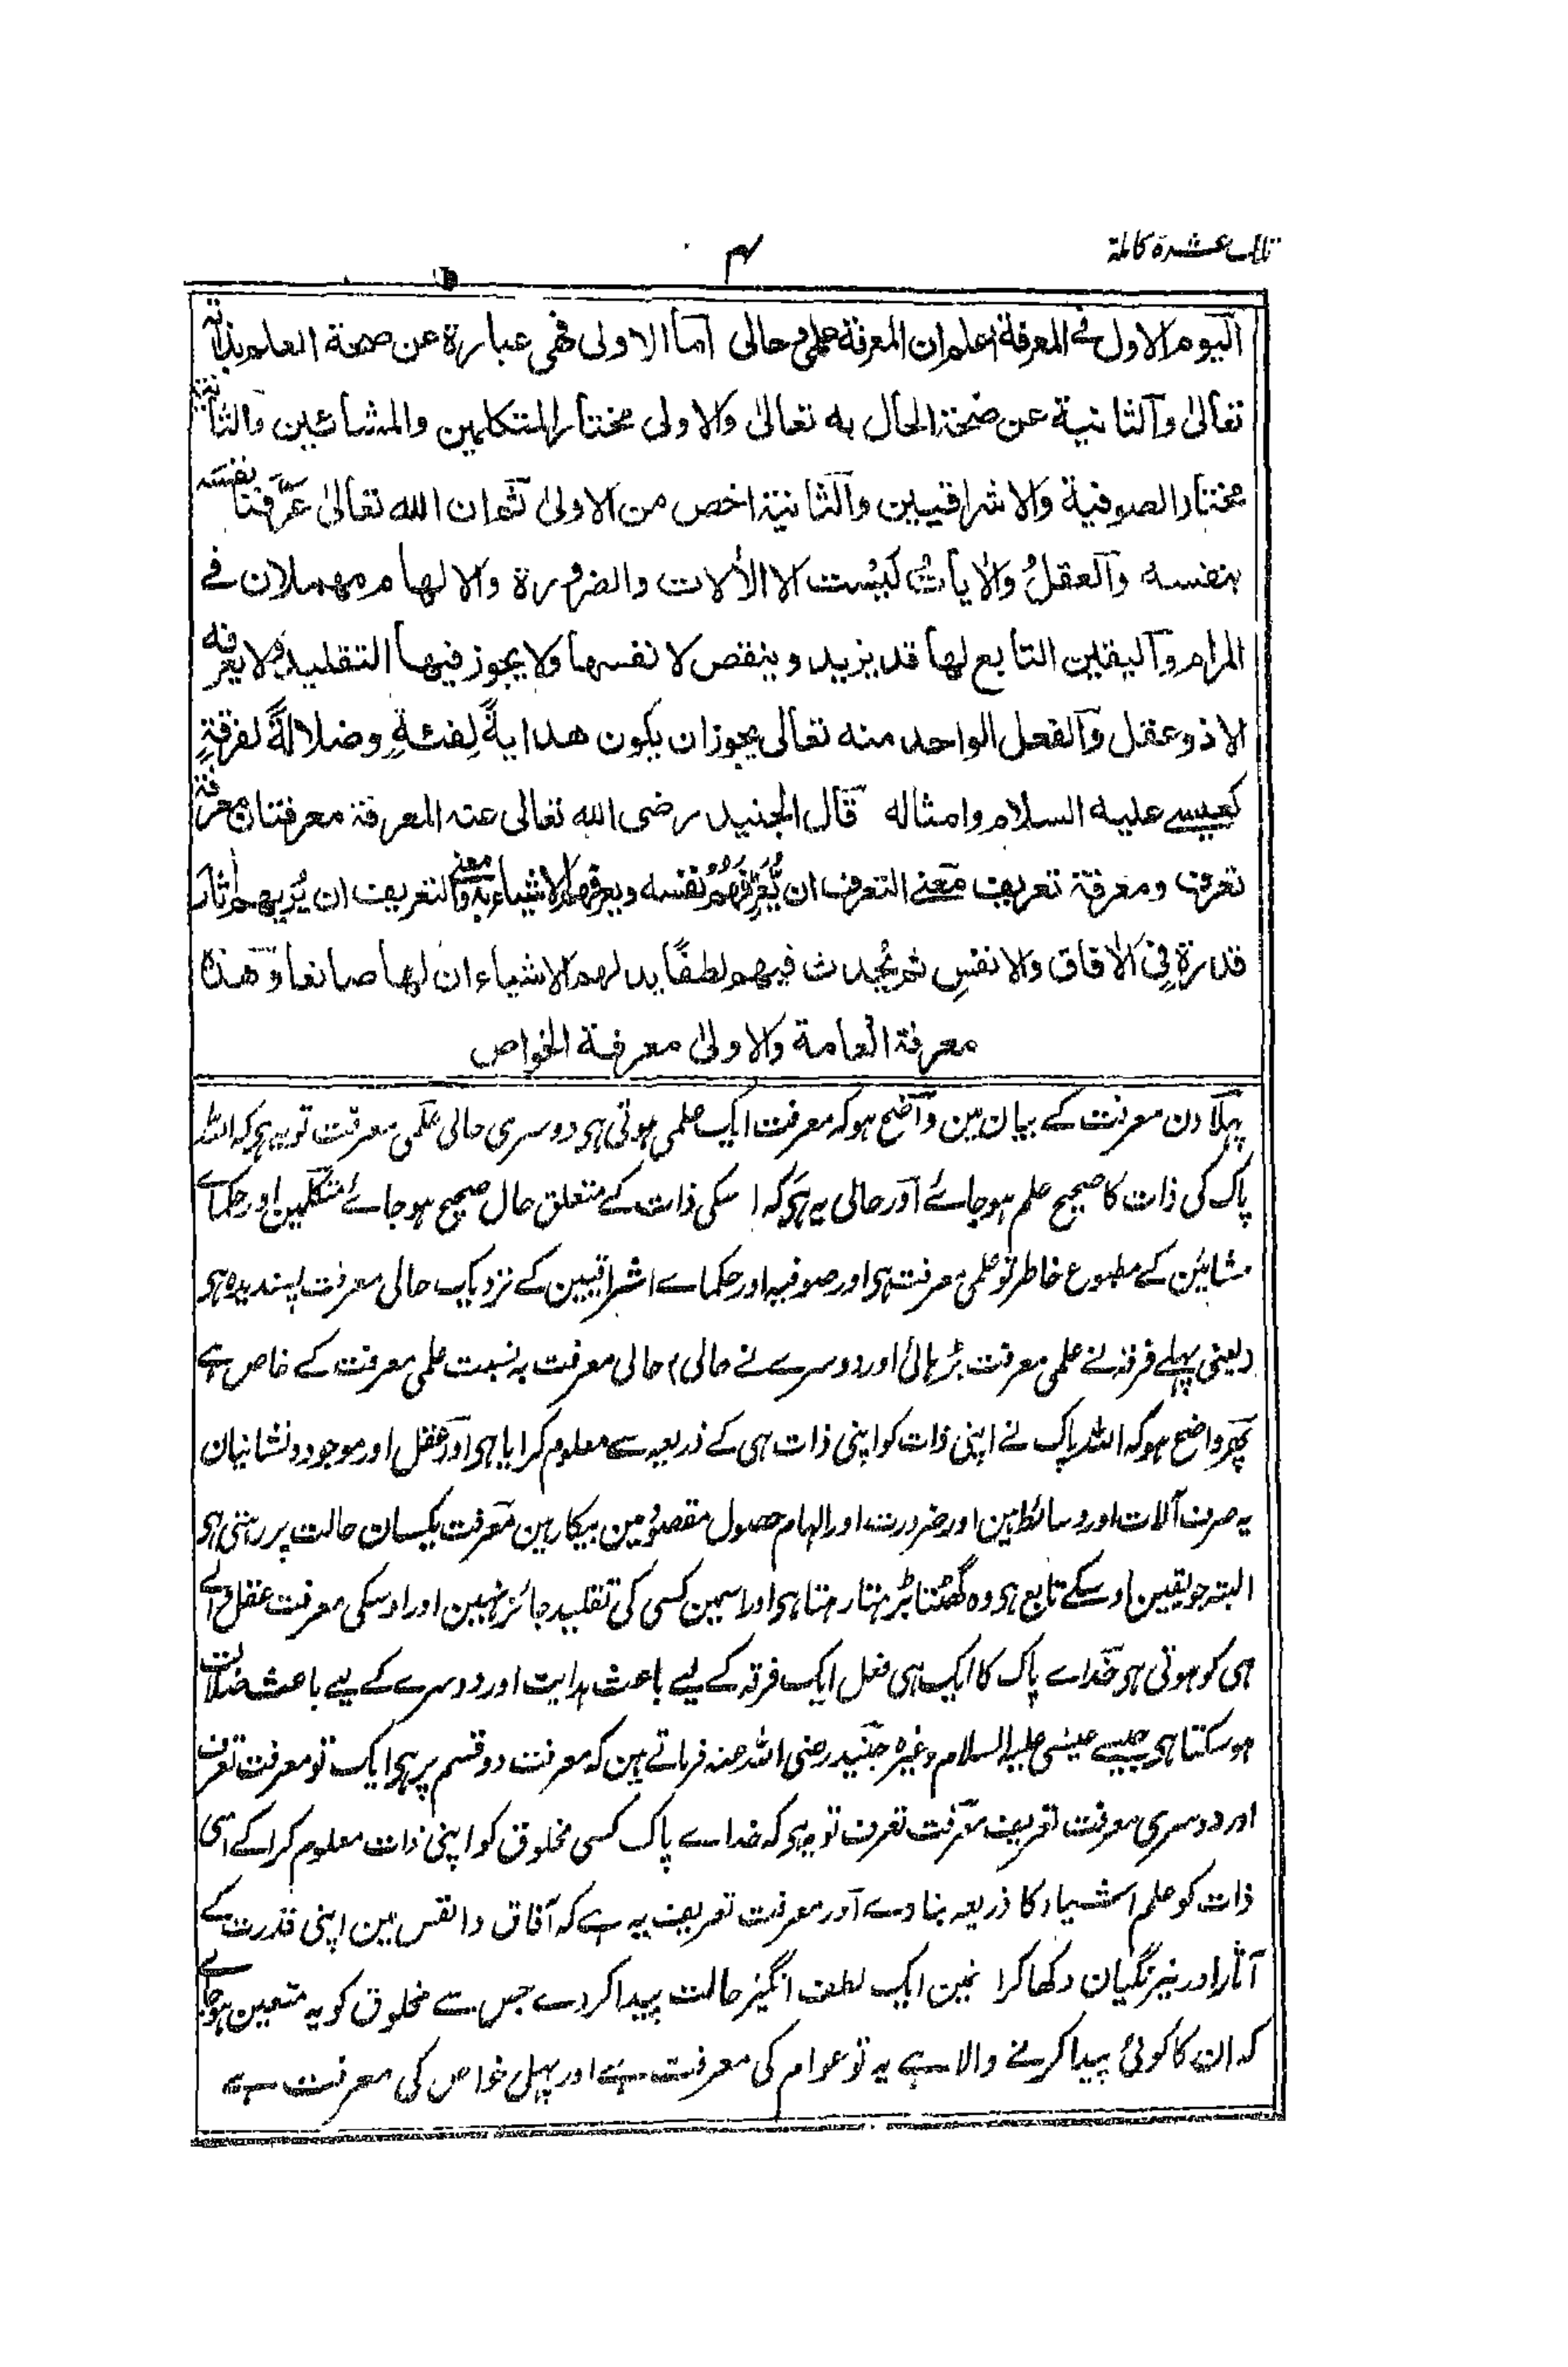 تلك عشرة كاملة
۴
اليوم الاول فے المعرفة اعلم ان المعرفة علمی وحالی اما الاولی فهی عبارة عن صحة العلم بذاته
تعالیٰ والثانية عن صحة الحال به تعالیٰ والاولی مختار المتكلمين والمشائيين والثانية
مختار الصوفية والاشراقيين والثانية اخص من الاولیٰ ثم ان الله تعالیٰ عرّفنا نفسه
بنفسه والعقلُ والاٰياتُ ليست الا الاٰلات والضرورة والالهام مهملان فے
المرام واليقين التابع لها قد يزيد وينقص لا نفسها ولا يجوز فيها التقليد ولا يعرفه
الا ذو عقل والفعل الواحد منه تعالی يجوز ان يكون هدايةً لِفئةٍ وضلالةً لفرقةٍ
كعيسے عليه السلام وامثاله قال الجنيد رضی الله تعالی عنه المعرفة معرفتان معرفة
تعرف ومعرفة تعريف معنے التعرف ان يُّعَرِّفَهُمْ نفسه ويعرفهم الاشياء به ومعنے التعريف ان يُّريهم اٰثار
قدرة فِی الاٰفاق والانفسِ ثم يُحدث فيهم لطفًا يدلهم الاشياء ان لها صانعا وهذه
معرفة العامة والاولیٰ معرفة الخواص
پہلا دن معرفت کے بیان مین واضح ہو کہ معرفت ایک علمی ہوتی ہی دوسری حالی علمی معرفت تو یہ ہی کہ اللہ
پاک کی ذات کا صحیح علم ہو جائے اور حالی یہ ہی کہ اسکی ذات کے متعلق حال صحیح ہو جائے متکلمین اور حکماے
مشائین کے مطبوع خاطر تو علمی معرفت ہی اور صوفیہ اور حکماے اشراقیین کے نزدیک حالی معرفت پسندیدہ ہی
(یعنی پہلے فرقہ نے علمی معرفت بڑہائی اور دوسرے نے حالی) حالی معرفت بہ نسبت علمی معرفت کے خاص ہے
پھر واضح ہو کہ اللہ پاک نے اپنی ذات کو اپنی ذات ہی کے ذریعہ سے معلوم کرایا ہی اور عقل اور موجودہ نشانیان
یہ صرف آلات اور وسائط ہین اور ضرورت اور الہام حصول مقصود مین بیکار ہین معرفت یکسان حالت پر رہتی ہی
البتہ جو یقین اوسکے تابع ہی وہ گھٹتا بڑہتا رہتا ہی اور اسمین کسی کی تقلید جائز نہین اور اوسکی معرفت عقل والے
ہی کو ہوتی ہی خداے پاک کا ایک ہی فعل ایک فرقہ کے لیے باعث ہدایت اور دوسرے کے لیے باعث ضلالت
ہو سکتا ہی جیسے عیسٰی علیہ السلام وغیرہ جنید رضی اللہ عنہ فرماتے ہین کہ معرفت دو قسم پر ہی ایک تو معرفت تعرف
اور دوسری معرفت تعریف معرفت تعرف تو یہ ہی کہ خداے پاک کسی مخلوق کو اپنی ذات معلوم کرا کے اسی
ذات کو علم اشیاء کا ذریعہ بنا دے اور معرفت تعریف یہ ہے کہ آفاق و انفس مین اپنی قدرت کے
آثار اور نیرنگیان دکھا کر انمین ایک لطف انگیز حالت پیدا کر دے جس سے مخلوق کو یہ متعین ہو جائے
کہ ان کا کوئی پیدا کرنے والا ہے یہ تو عوام کی معرفت ہے اور پہلی خواص کی معرفت ہے